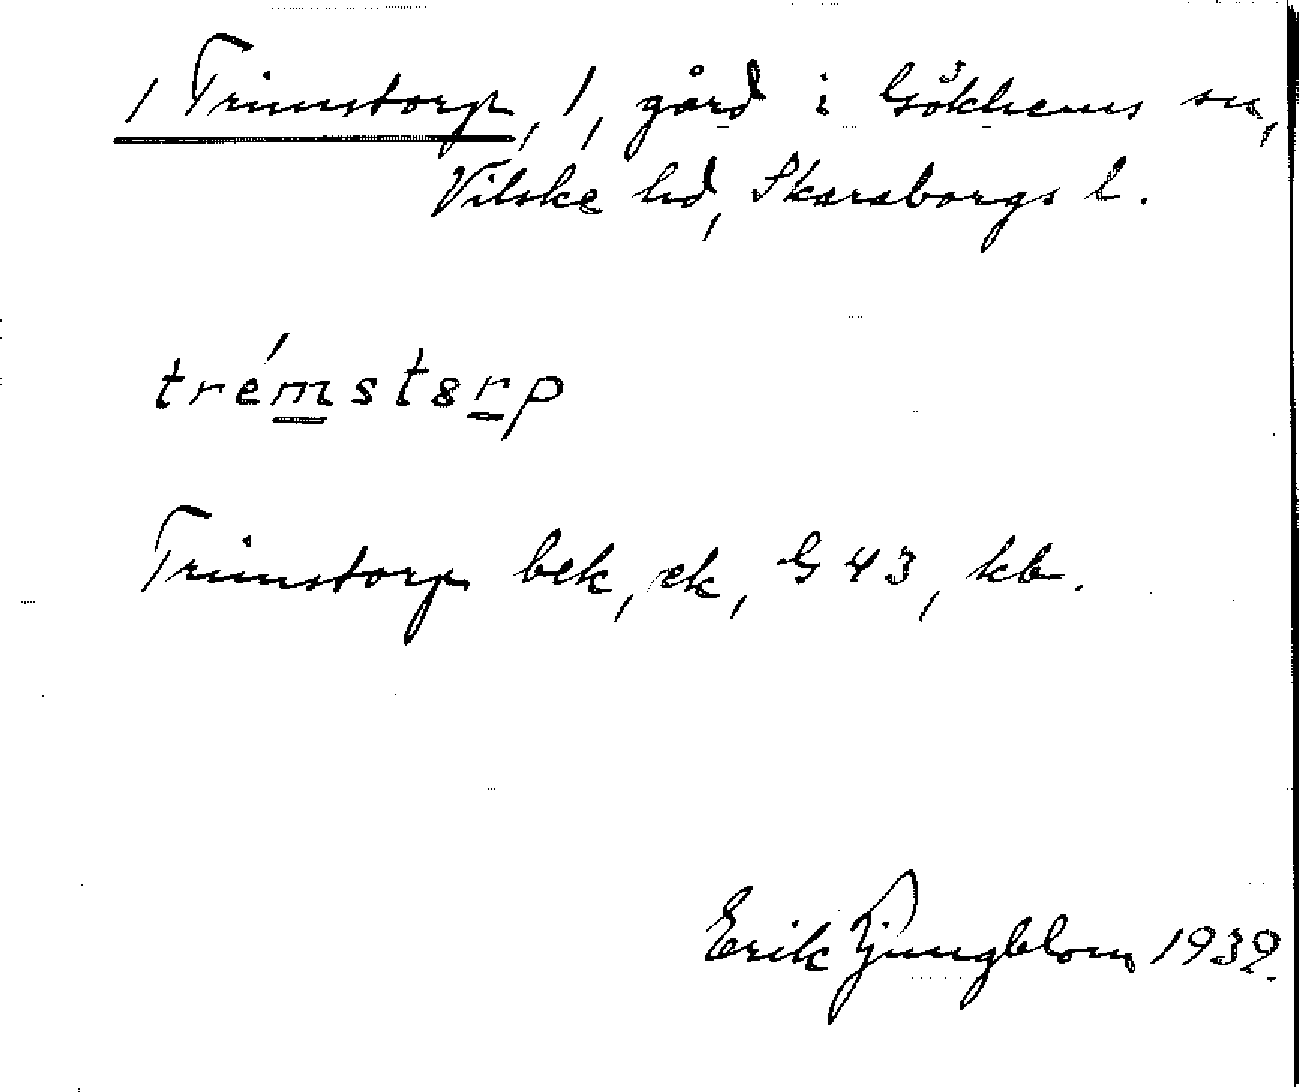 / Trimstorp, 1, gård i Gökhems sn,
Vilske hd, Skaraborgs l.
trém̲stȣr̲p
Trimstorp bek, ek, G 43, kb.
Erik Ljungblom 1939.